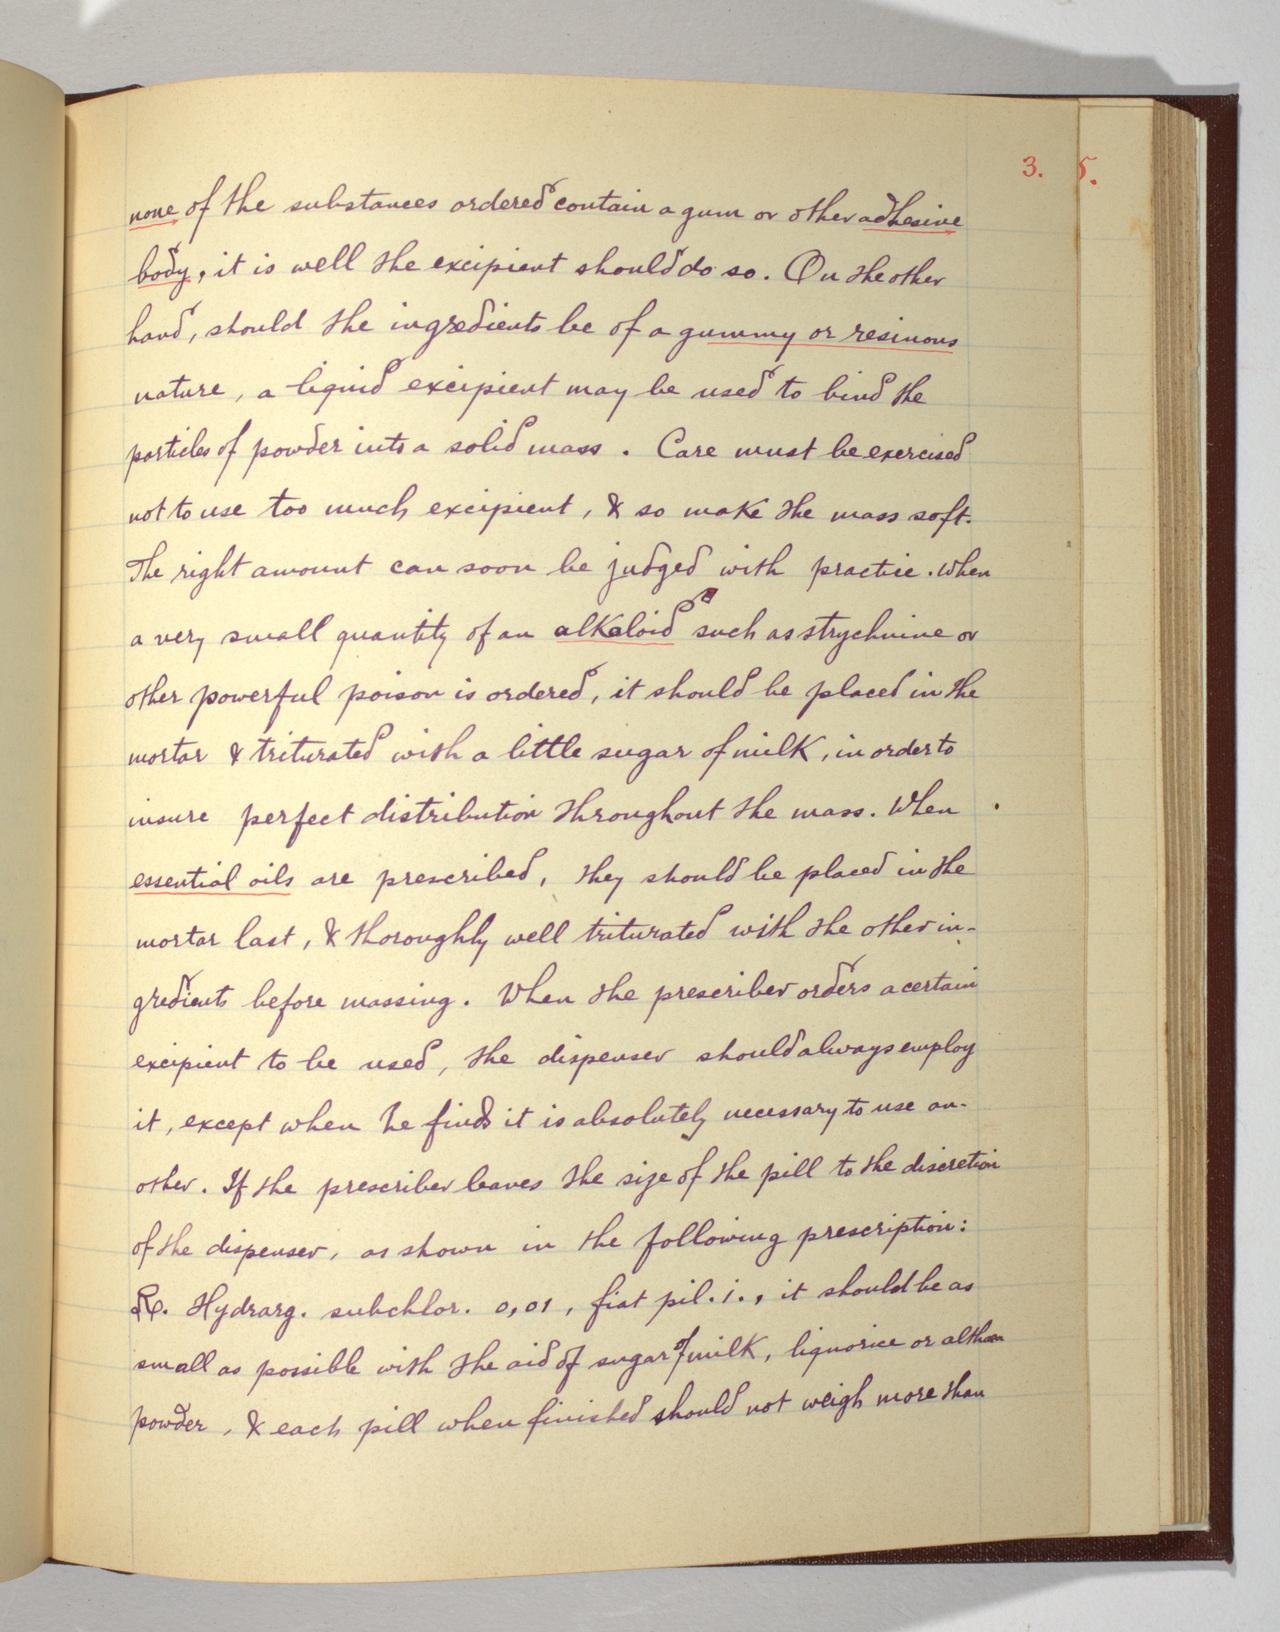 3. 5.
none of the substances ordered contain a gum or other adhesive
body, it is well the excipient should do so. On the other
hand, should the ingredients be of a gummy or resinous
nature, a liquid excipient may be used to bind the
particles of powder into a solid mass. Care must be exercised
not to use too much excipient, & so make the mass soft.
The right amount can soon be judged with practice. When
a very small quantity of an alkaloid such as strychnine or
other powerful poison is ordered, it should be placed in the
mortar & triturated with a little sugar of milk, in order to
insure perfect distribution throughout the mass. When
essential oils are prescribed, they should be placed in the
mortar last, & thoroughly well triturated with the other in-
gredients before massing. When the prescriber orders a certain
excipient to be used, the dispenser should always employ
it, except when he finds it is absolutely necessary to use an-
other. If the prescriber leaves the size of the pill to the discretion
of the dispenser, as shown in the following prescription:
Rp. Hydrarg. subchlor. 0,01, fiat pil. i., it should be as
small as possible with the aid of sugar of milk, liquorice or althæa
powder, & each pill when finished should not weigh more than